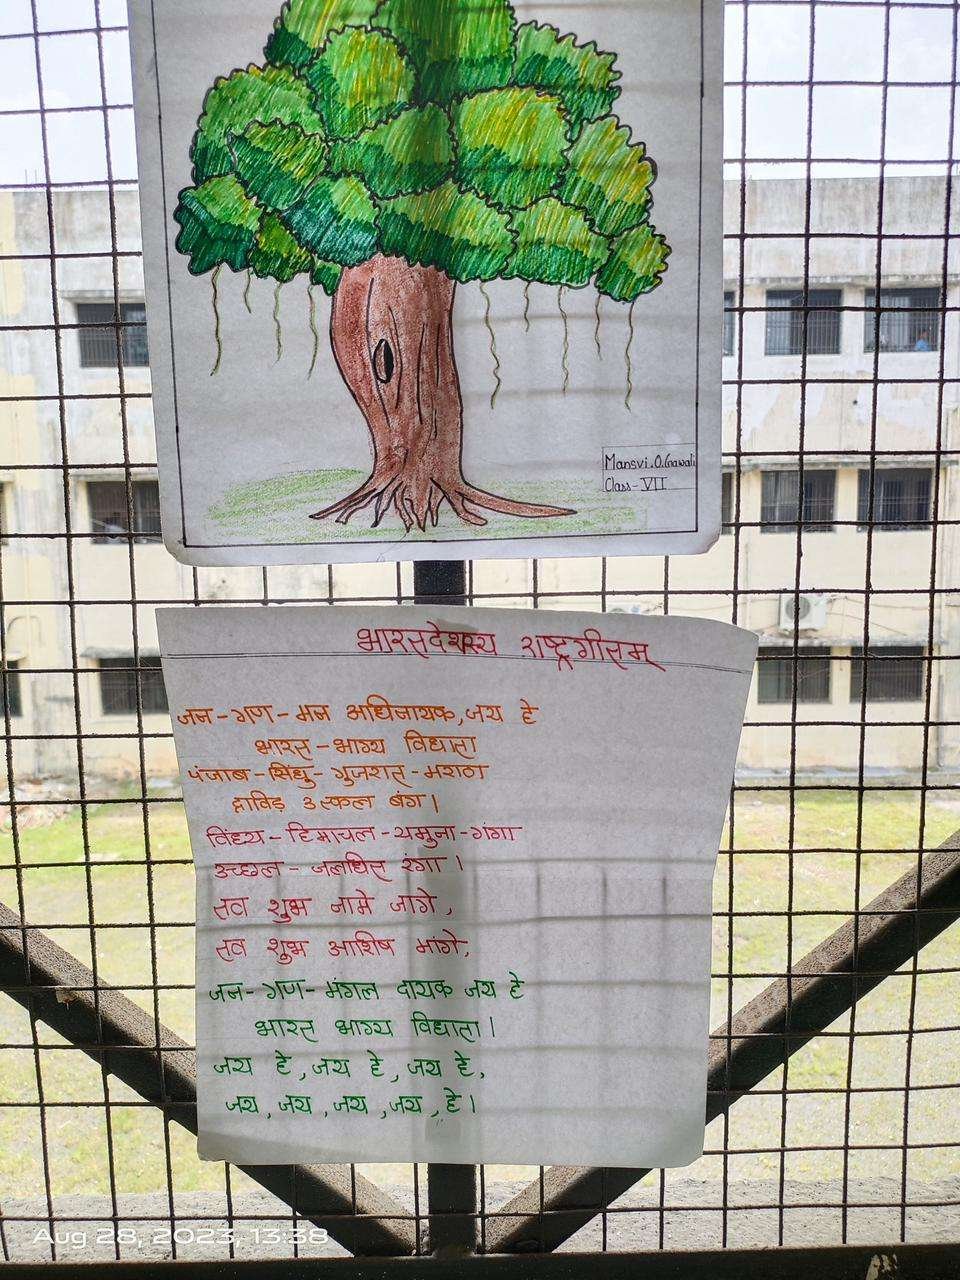 Mansvi.O.Gawali
Class-VII
भारतदेशस्य राष्ट्रगीतम्
जन-गण-मन अधिनायक, जय हे
भारत-भाग्य विधाता
पंजाब-सिंधु-गुजरात-मराठा
द्राविड़ उत्कल बंग।
विंध्य-हिमाचल-यमुना-गंगा
उच्छल-जलधित रंगा।
तव शुभ नामे जागे,
तव शुभ आशिष मांगे,
जन-गण-मंगल दायक जय हे
भारत भाग्य विधाता।
जय हे, जय हे, जय हे,
जय, जय, जय, जय, हे।
Aug 28, 2023, 13:38